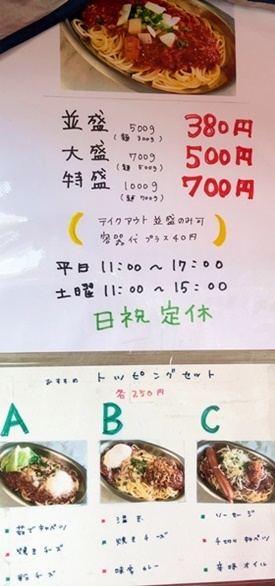 並盛 500g 380円
(麺 300g)
大盛 700g 500円
(麺 500g)
特盛 1000g 700円
(麺 700g)
テイクアウト 並盛のみ可
容器代 プラス40円
平日 11:00 〜 17:00
土曜 11:00 〜 15:00
日祝 定休
おすすめ トッピングセット
各250円
A B C
茹でキャベツ
焼きチーズ
粉チーズ
温玉
焼きチーズ
味変カレー
ソーセージ
千切りキャベツ
辛味オイル